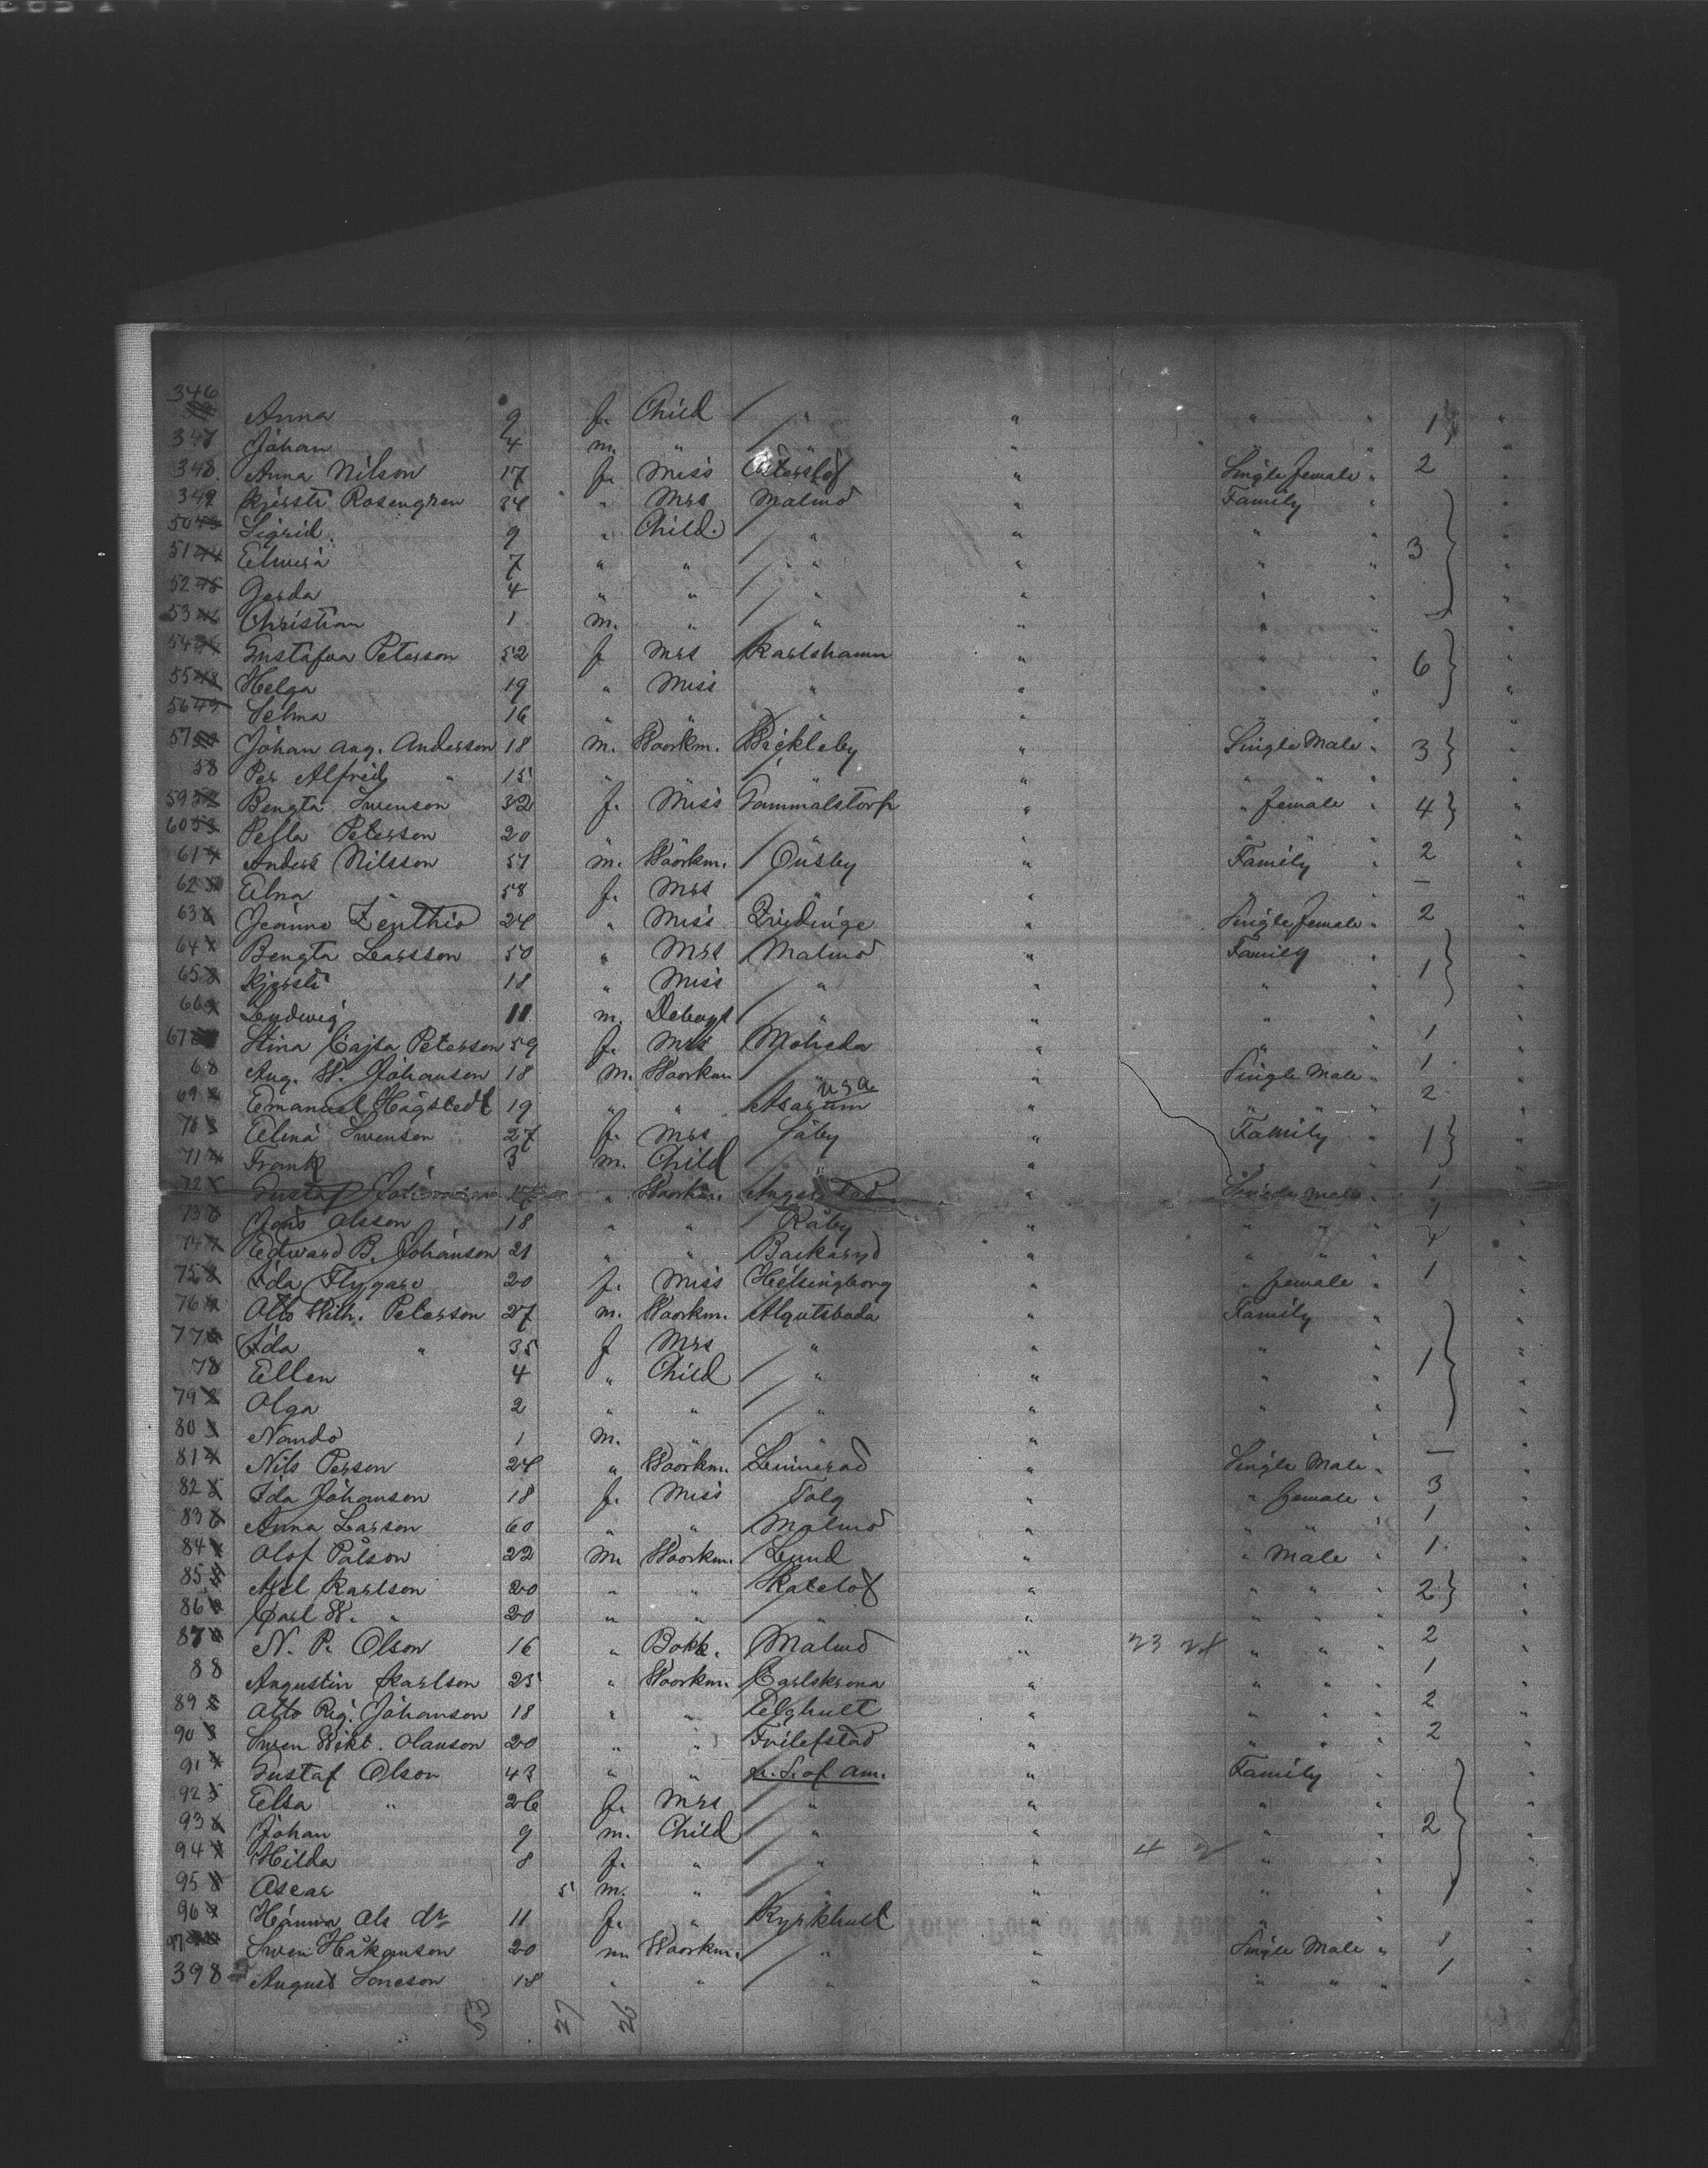 346 Anna 9 f. Child " " " " 1 "
347 Johan 4 m. " " " " "
348 Anna Nilson 17 f. Miss " Single female " 2 "
349 Kjersti Rosengren 34 " Mrs Malmö " Family " "
50 Sigrid 9 " Child " " " " 3
51 Elmira 7 " " " " " " "
52 Gerda 4 " " " " " " "
53 Christian 1 m. " " " " " "
54 Gustafva Peterson 52 f Mrs Karlshamn " " " 6 "
55 Helga 19 " Miss " " " " "
56 Selma 16 " " " " " " "
57 Johan Aug. Anderson 18 m. Woorkm. Bickleby " Single Male " 3 "
58 Per Alfred " 15 " " " " " " "
59 Bengta Swenson 32 f. Miss Gammalstorp " " female " 4 "
60 Pella Peterson 20 " " " " " " "
61 Anders Nilsson 57 m. Woorkm. Ousby " Family " 2 "
62 Elna " 58 f. Mrs " " " " — "
63 Jeanna 24 " Miss " Single female " 2 "
64 Bengta Larsson 50 " Mrs Malmö " Family " 1 "
65 Kjersti 18 " Miss " " " " "
66 Ludwig 11 m. " " " " "
67 Stina Cajsa Peterson 59 f. Mrs Moheda " " " 1 "
68 Aug. W. Johanson 18 m. Woorkm " " Single Male " 1 "
69 Emanuel Hagstedt 19 " " Asarum USA " " " " 2 "
70 Elina Swenson 27 f. Mrs Säby " Family " 1 "
71 Frank 3 m. Child " " " " "
72 Gustaf 17 " Woorkm. " Single Male " 1 "
73 Jöns Olsson 18 " " Råby " " " " 1 "
74 Edward B. Johanson 21 " " Backaryd " " " " "
75 Ida Flygare 20 f. Miss Helsingborg " " female " 1 "
76 Otto Wilh. Peterson 27 m. Woorkm. Algutsboda " Family " "
77 Ida " 35 f Mrs " " " " "
78 Ellen 4 " Child " " " " 1 "
79 Olga 2 " " " " " " "
80 Nando 1 m. " " " " " "
81 Nils Person 24 " Woorkm. " Single Male " — "
82 Ida Johanson 18 f. Miss Tolg " " female " 3 "
83 Anna Larson 60 " " Malmö " " " " 1 "
84 Olof Pålson 22 m. Woorkm. Lund " " Male " 1 "
85 Axel Karlson 20 " " Skatelöf " " " " 2 "
86 Carl W. " 20 " " " " " " " "
87 N. P. Olson 16 " Bokk. Malmö " 23 28 " " " 2 "
88 Augustin Karlson 25 " Woorkm. Carlskrona " " " " 1 "
89 Otto Rig. Johanson 18 " " Elghult " " " " 2 "
90 Swen Wikt. Olauson 20 " " " " " " 2 "
91 Gustaf Olson 43 " " U. S. of Am. " Family " "
92 Elsa " 26 f. Mrs " " " " "
93 Johan 9 m. Child " " " " 2 "
94 Hilda 8 f. " " " 4 " " "
95 Oscar 5 m. " " " " " "
96 Hanna Ols dr 11 f. " Kyrkhult " " " "
97 Swen Håkanson 20 m Woorkm. " " Single Male " 1 "
398 August Soneson 18 " " " " " " " 1 "
53 27 26